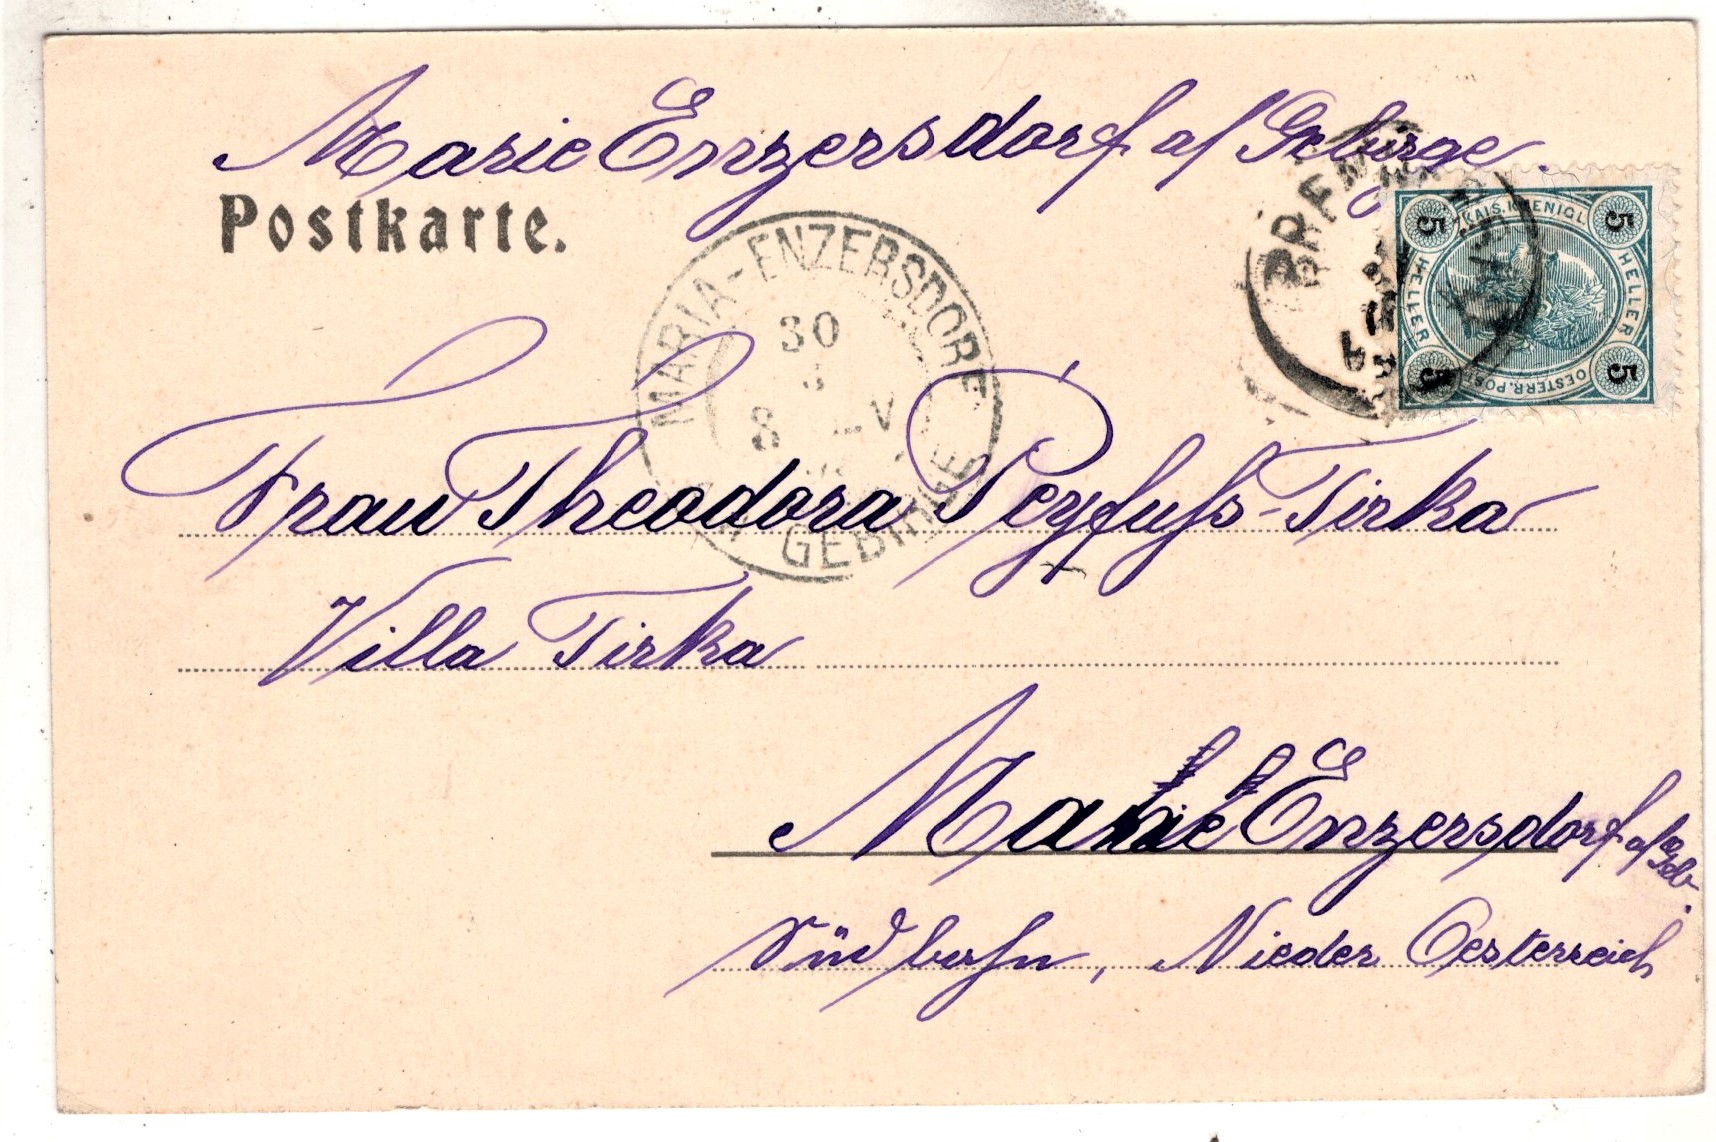 Marie Enzersdorf a/ Gebirge.
Postkarte.
MARIA-ENZERSDORF
30
3
8 V
GEBIRGE
KAIS. KOENIGL
5 HELLER 5
5 HELLER 5
OESTERR. POST
Frau Theodora Peyfuß-Tirka
Villa Tirka
Enzersdorf a/ Geb.
Südbahn, Nieder Oesterreich